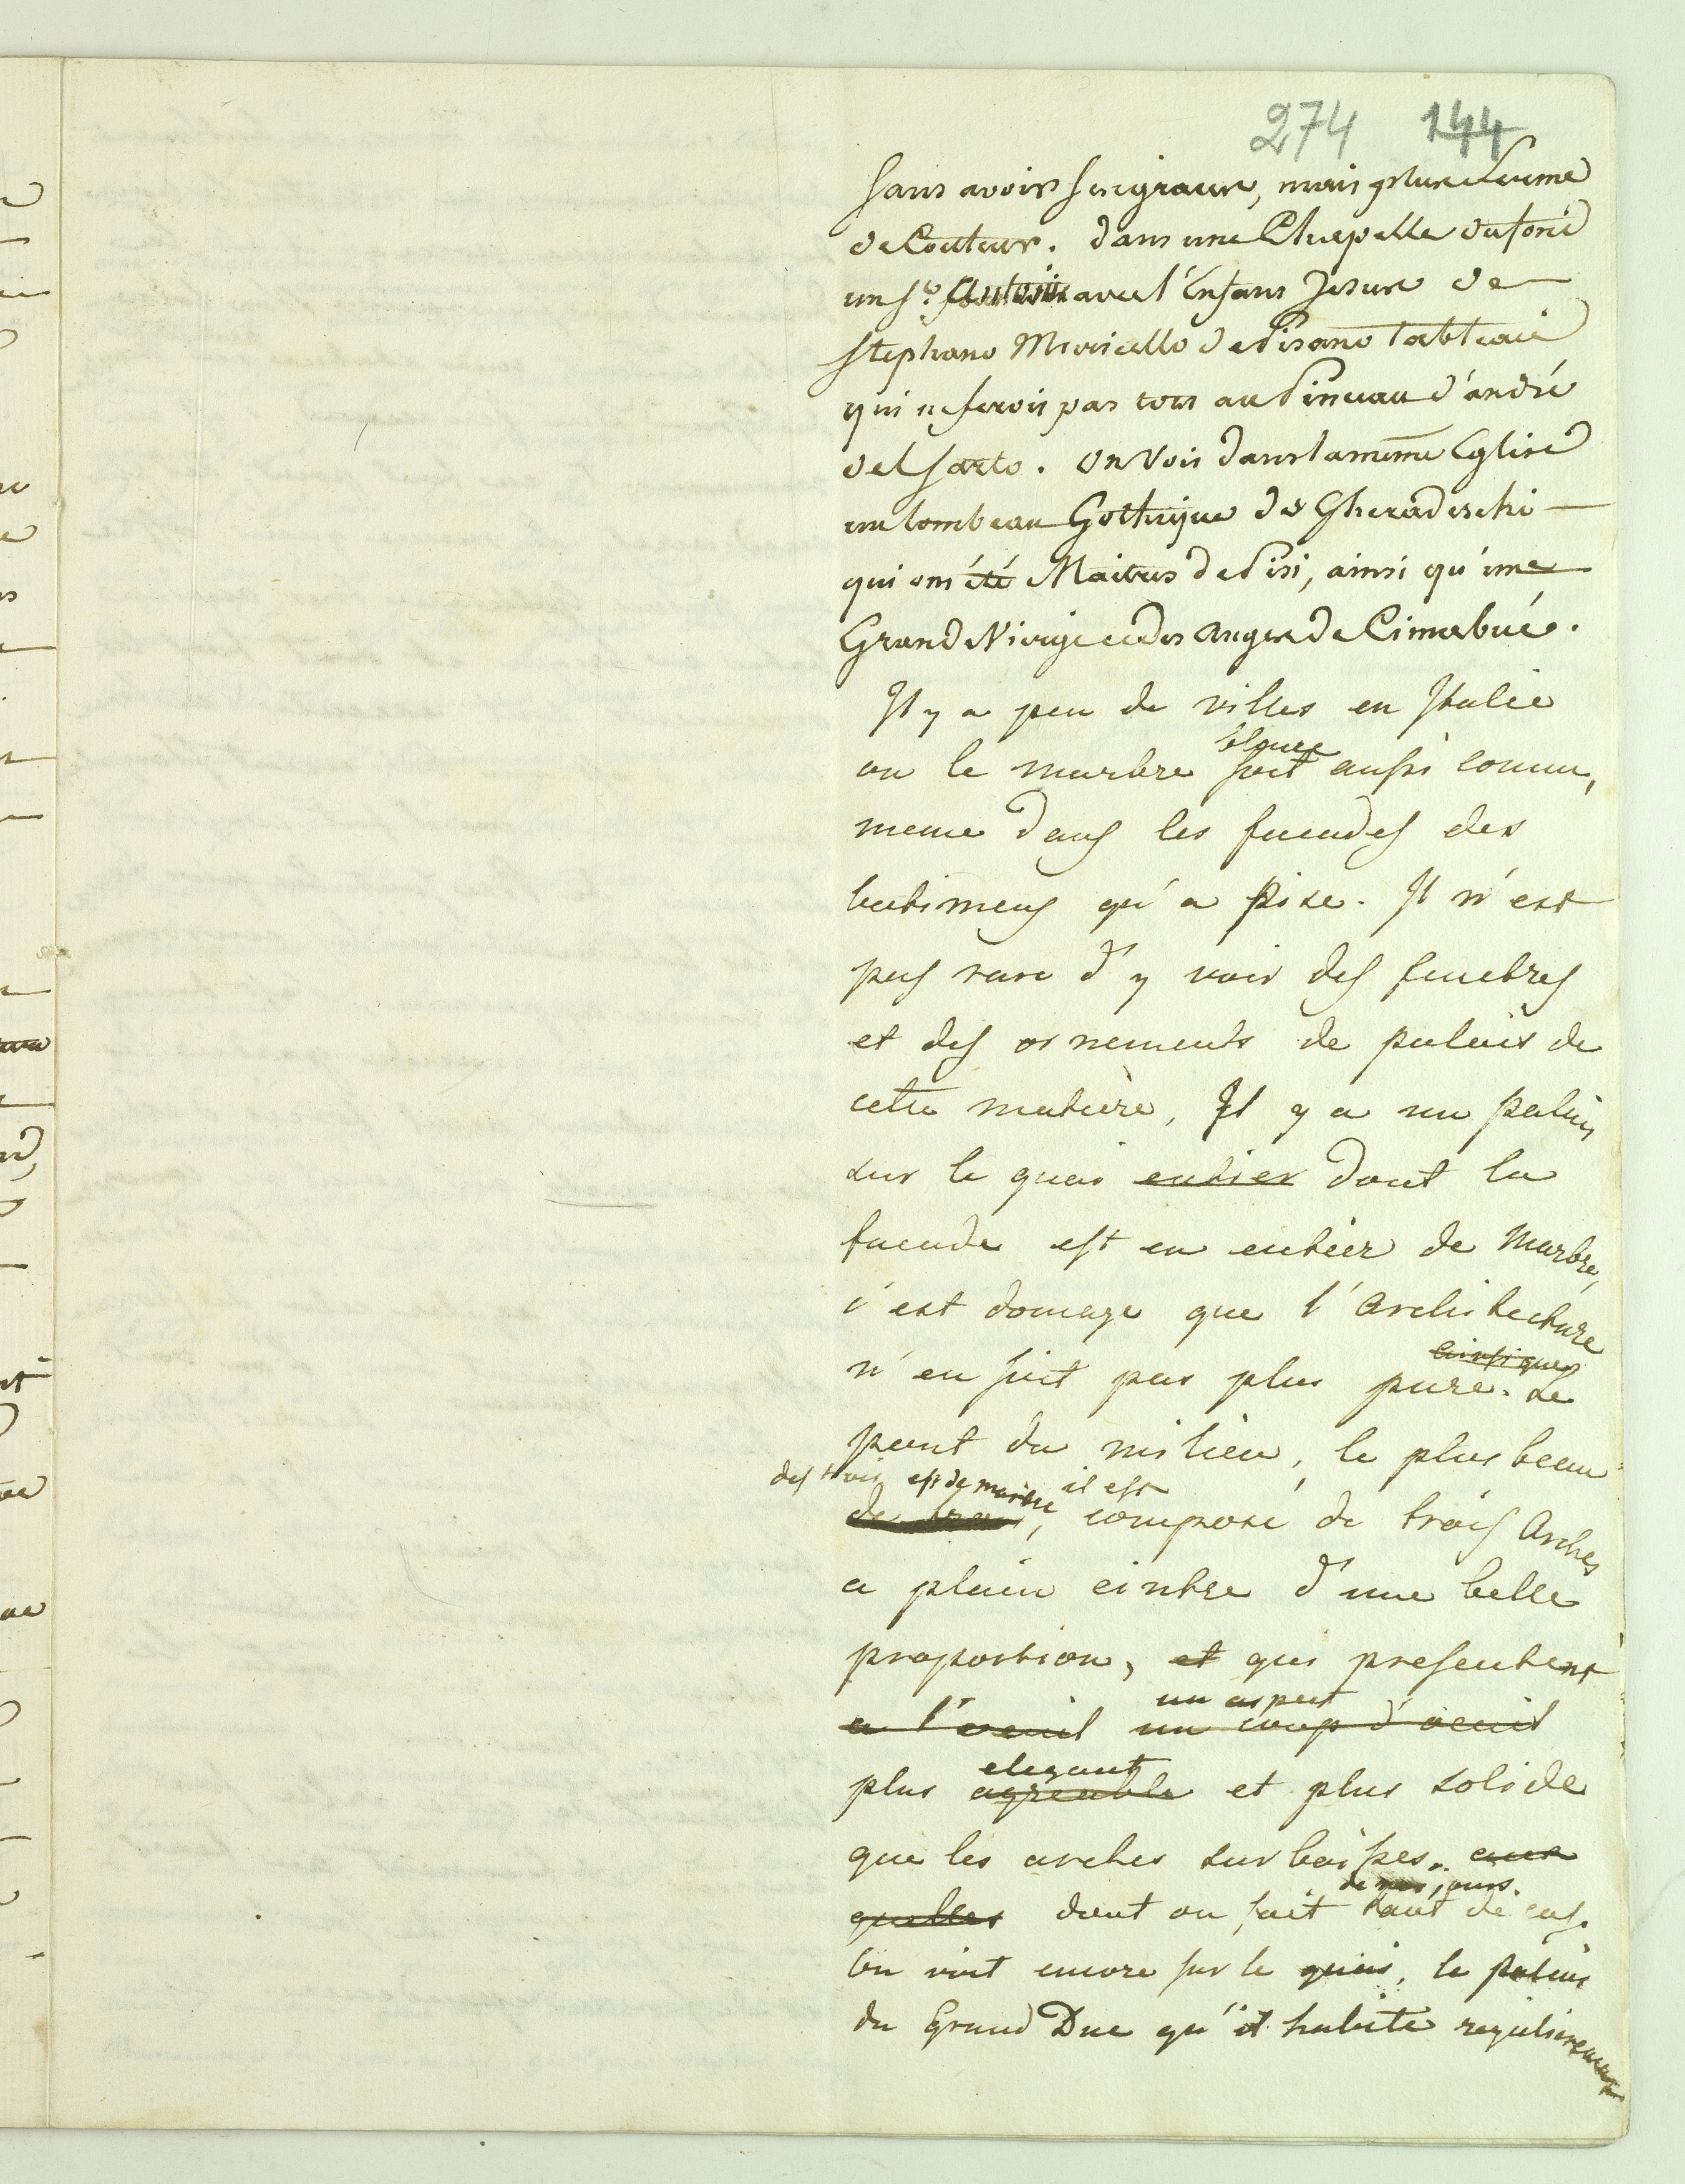 274 144
sans avoir ses graces, mais plus ferme
de Couleur. dans une Chapelle du fond
un St. Antoin avec l'Enfans Jesus de
stephano Moricello de Pisano tableau
qui ne feroit pas tors au Pinceau d'andré
del sarto. on Vois dans la meme Eglise
un tombeau Gothique des Gheradeschi
qui ont été Maitres de Pisi, ainsi qu'une
Grande Vierge et des anges de Cimabué.
Il y a peu de villes en Italie
blanc
ou le marbre soit aussi comun,
meme dans les facades des
batimens qu'a Pise. Il n'est
pas rare d'y voir des fenetres
et des ornements de palais de
cette matière, Il y a un palais
sur le quai entier dont la
facade est en entier de Marbre,
c'est domage que l'Architecture
ainsi que
n'en soit pas plus pure. Le
pont du milieu, le plus beau
des trois est de marbre il est
de trois, composé de trois Arches
a plain cintre d'une belle
proportion, et qui presentent
un aspect
a l'oeuil un coup d'oeuil
elegant
plus agreable et plus solide
que les arches surbaissees. aux
de nos jours.
quelles dont on fait tant de cas.
On voit encore sur le quai, le palais
du Grand Duc qu'il habite regulierement